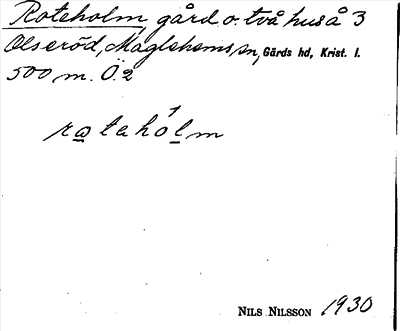 Roteholm, gård o. två hus å 3
Olseröd, Maglehems sn, Gärds hd, Krist. l.
500 m. Ö. 2
rataho̍lm
NILS NILSSON 1930